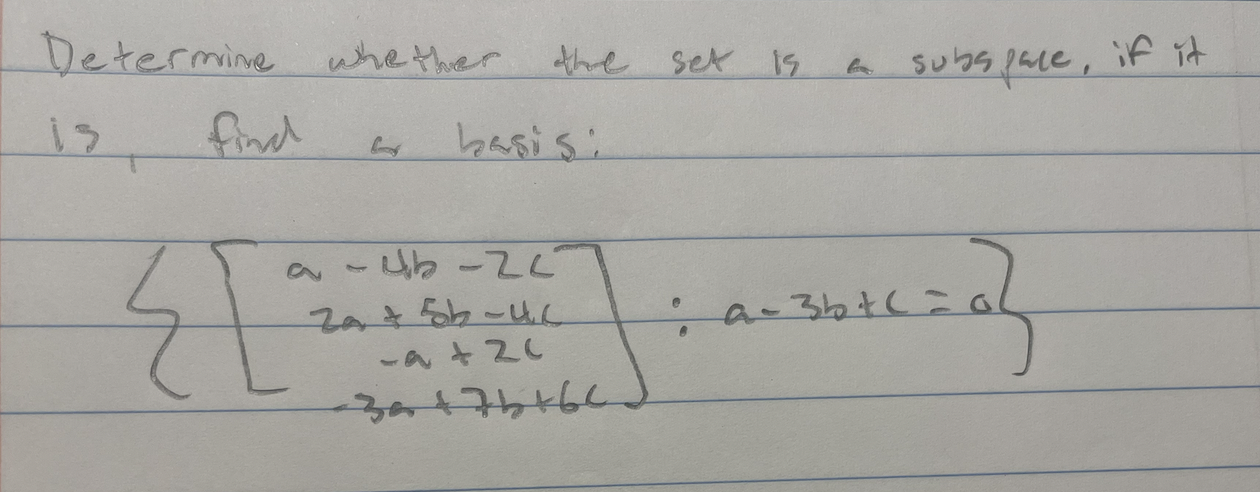 Determine whether the set is a subspace, if it
is, find a basis:
a - 4b - 2c
2a + 5b - 4c
-a + 2c : a - 3b + c = 0
-3a + 7b + 6c